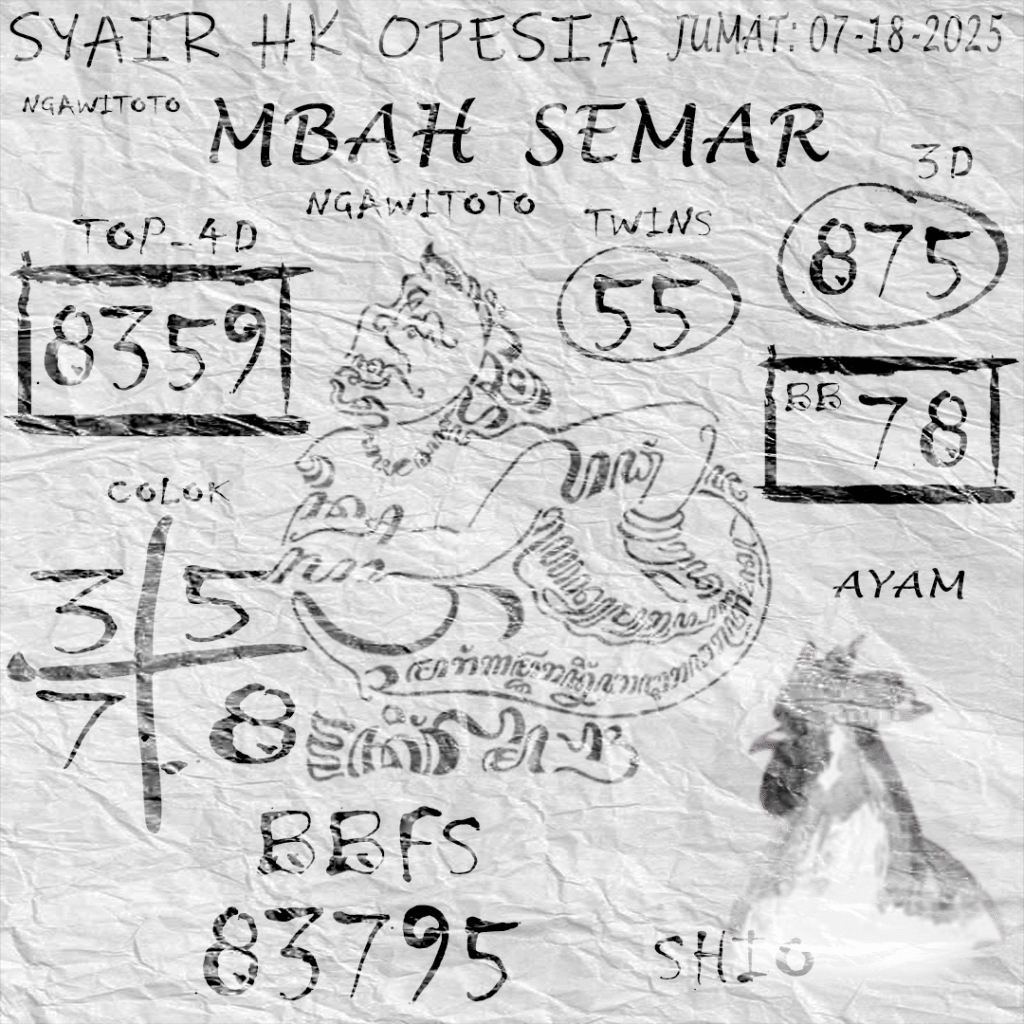 SYAIR HK OPESIA JUMAT: 07-18-2025
NGAWITOTO
MBAH SEMAR
NGAWITOTO
TOP_4D
8359
TWINS
55
3D
875
BB 78
COLOK
3 5
7 8
AYAM
BBFS
83795
SHIO